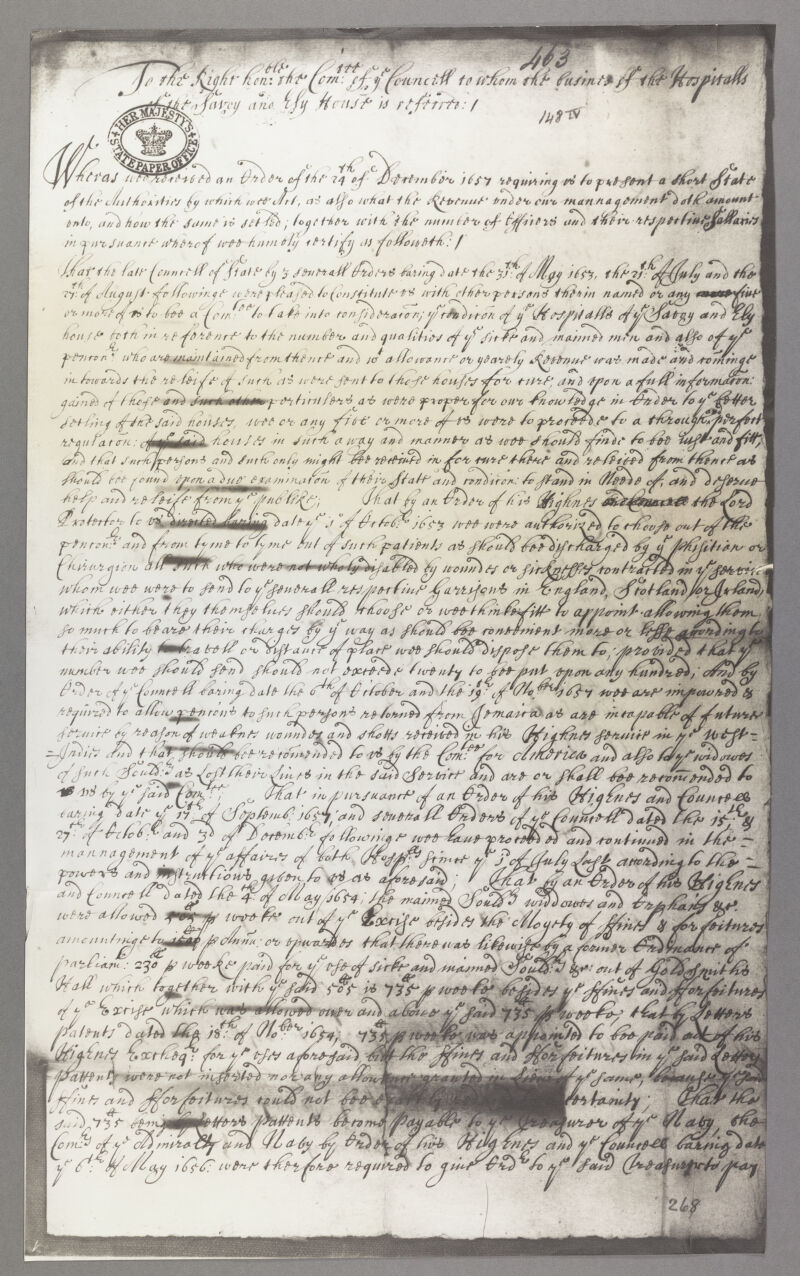 463
To the Right hon:ble the Com:tee of ye Councell to whom the busines of the Hospitalls
of the Savoy and Ely House is referred: /
148 IV
HER MAJESTY'S STATE PAPER OFFICE
Wheras wee received an Order of the 24th of December 1657 requiring us to present a short State
of the Authorities by which wee Act, as also what the Revenue under our mannagement doth amount
unto, and how the same is setled; together with the number of Officers and their respective Sallaries
in pursuance wherof wee humbly certify as followeth: /
That the late Councell of State by 3 severall Orders baring date the 31th of May 1653, the 21th of July and the
of August followinge were pleased to Constitute us with other persons therin named or any five
or more of us to bee a Com:tee to take into consideracon; ye condicon of ye Hospitalls of ye Savoy and Ely
house both in reference to the number and qualities of ye sick and maimed men and also of ye
pencon:rs who are maintained from thence and wt allowance or yearely Revenue was made and cominge
in towards the releife of such as were sent to those houses for cure, and upon a full informacon:
gained of those and such other perticulers as were proper for our knowledge in Order to ye better
setling of the said houses, wee or any five or more of us were to proceede to a through & perfect
regulacon: of ye said houses in such a way and manner as wee should finde to bee just and fitt,
and that such persons and such only might bee received in for cure there and releived from thence as
should bee found upon a due examinacon of their State and condicon to stand in Neede of, and deserve
help and releife from ye publike; That by an Order of his Highnes the Lord
Protector to us directed baring date ye 1st of Octob:r 1657 wee were authorized to choose out of the
pencon:rs and from tyme to tyme out of such patients as should bee discharged by ye Phisition or
Chirurgion all such who were not wholy disabled by wounds or sicknesses contracted in ye service
whom wee were to send to ye severall respective Garrisons in England, Scotland or Irland,
which either they themselves should choose or wee thinke fitt to appoint allowing them
so much to beare their charges by ye way as should bee convenient more or lesse acording to
their ability to travell or distance of place wee should dispose them to; provided that ye
number wee should send should not exceede twenty to bee put upon any hundred; And by
Order of ye Councell baring date the 6th of October and the 19th of No:ber 1657 wee are impowred &
required to allow pencons to such persons returned from Jemaica as are incapable of future
service by reason of weaknes wounds and shotts received in his Highnes service in ye West-
=Indies and that should bee recomended to us by the Com:tee for America and also to ye widowes
of such Sould:rs as Lost their Lives in the said Service and are or shall bee recomended to
us by ye said Com:tee; That in pursuance of an Order of his Highnes and Councell
baring date ye 17th of Septemb: 1657, and severall Orders of ye Councell dated the 15th &
27th of Octob:r and 3d of Decemb:r followinge wee have proceeded and continued in the=
mannagement of ye affaires of both Hosp:lls since ye 1st of July Last acording to the=
powers and instructions given to us as aforesaid; That by an Order of his Highnes
and Councell dated the 4th of May 1654; the maimed Sould:rs widdowes and Orphans &c.
were allowed 505 p weeke out of ye Excise besides the Moyety of ffines & forfeitures
amountinge to p Annu: or upwardes that there was likewise by a former Ordinance of
parliam:t 230 p weeke paid for ye use of sicke and maimed Sould:rs &c: out of Goldsmiths
Hall which together with ye said 505 is 735 p weeke besides ye ffines and fforfeitures
of ye Excise which was allowed over and above ye said 735 p weeke, that by Letters
Patents dated the 18th of No:ber 1654, 735 p weeke was appointed to bee paid out of his
Highnes Excheq:r for ye uses aforesaid, but the ffines and fforfeitures in ye said Letters
Pattents were not inserted nor any allowance granted in Lieu of ye same, because ye said
ffines and fforfeitures could not bee certainty; That the
said 735 Letters pattents become payable to ye Treasurer of ye Navy, the
Com:rs of ye Admiralty and Navy by Order of his Highnes and ye Councell baring date
ye 6th of May 1656 were therfore required to give Ord:r to ye said Treasurer to pay
268